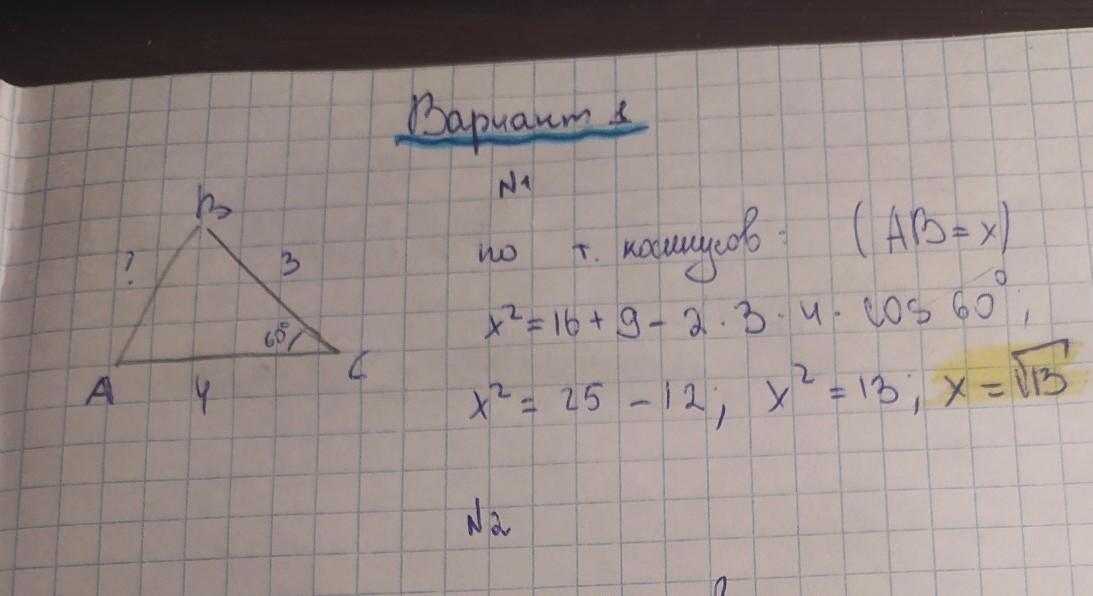 Вариант 1
N1
B
? 3
60°
A 4 C
по т. косинусов: (AB = x)
x² = 16 + 9 - 2 · 3 · 4 · cos 60°;
x² = 25 - 12; x² = 13; x = √13
N2